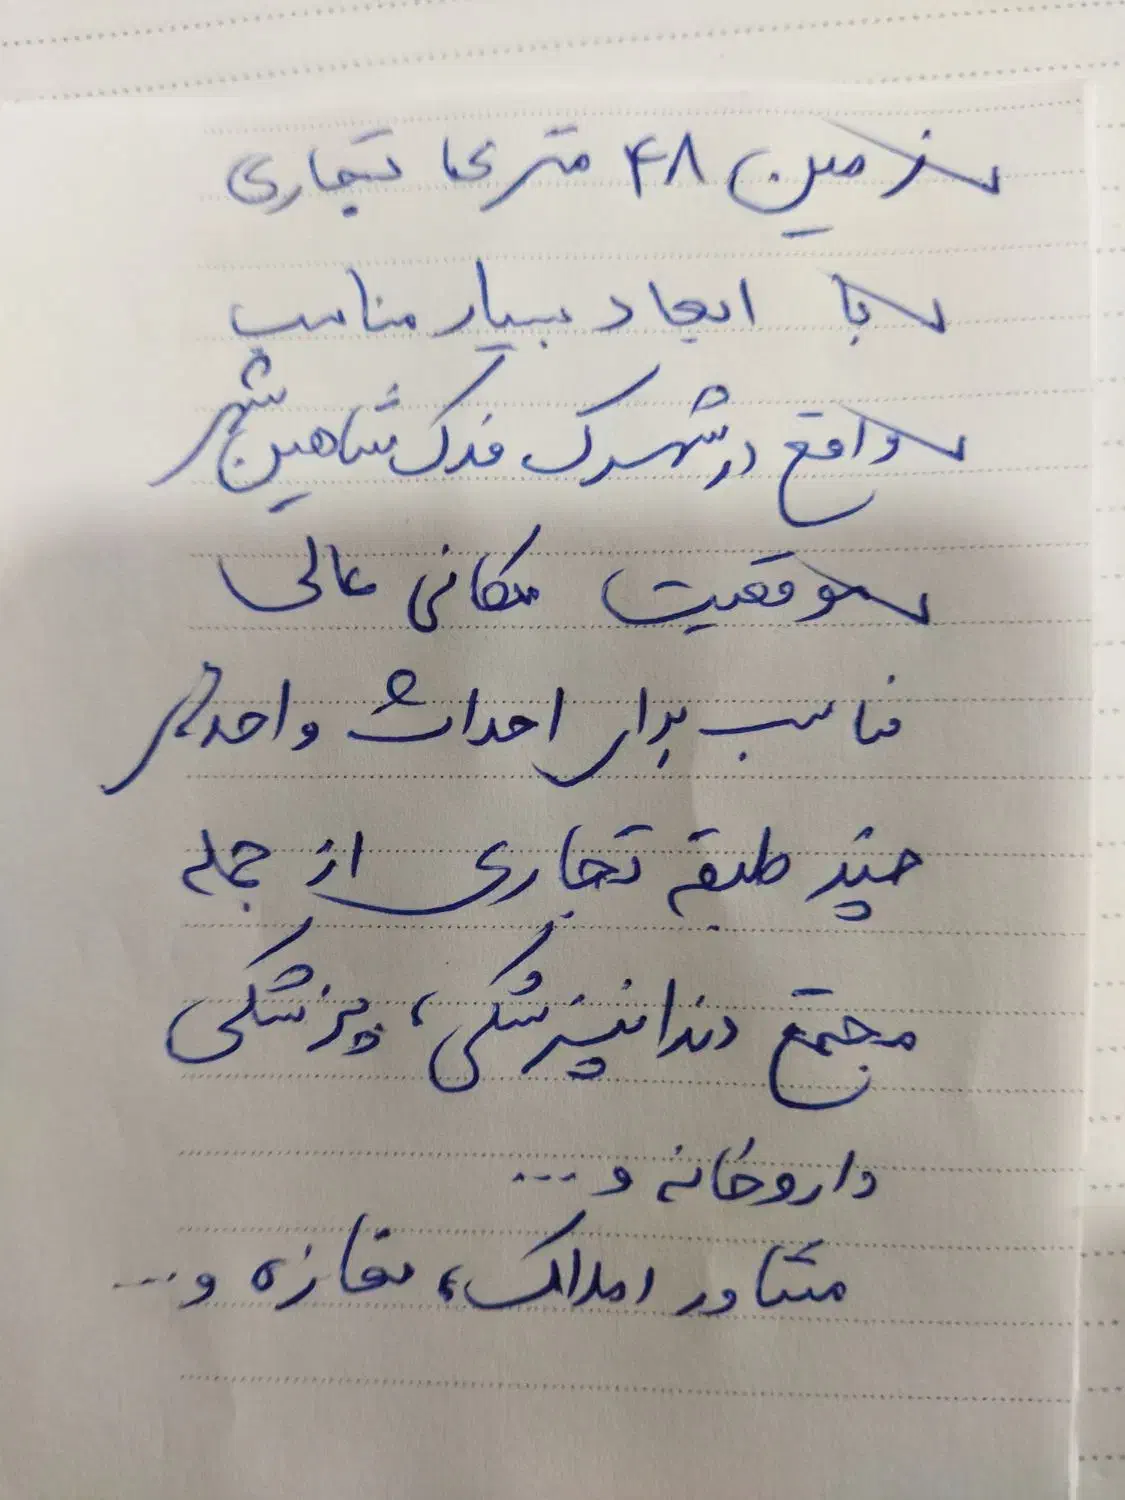 زمین ۴۸ متری، تجاری
با ابعاد بسیار مناسب
واقع در شهرک فدک شاهین شهر
موقعیت مکانی عالی
مناسب برای احداث واحدهای
چند طبقه تجاری از جمله
مجتمع دندانپزشکی، پزشکی
داروخانه و ...
مشاور املاک، مغازه و ...